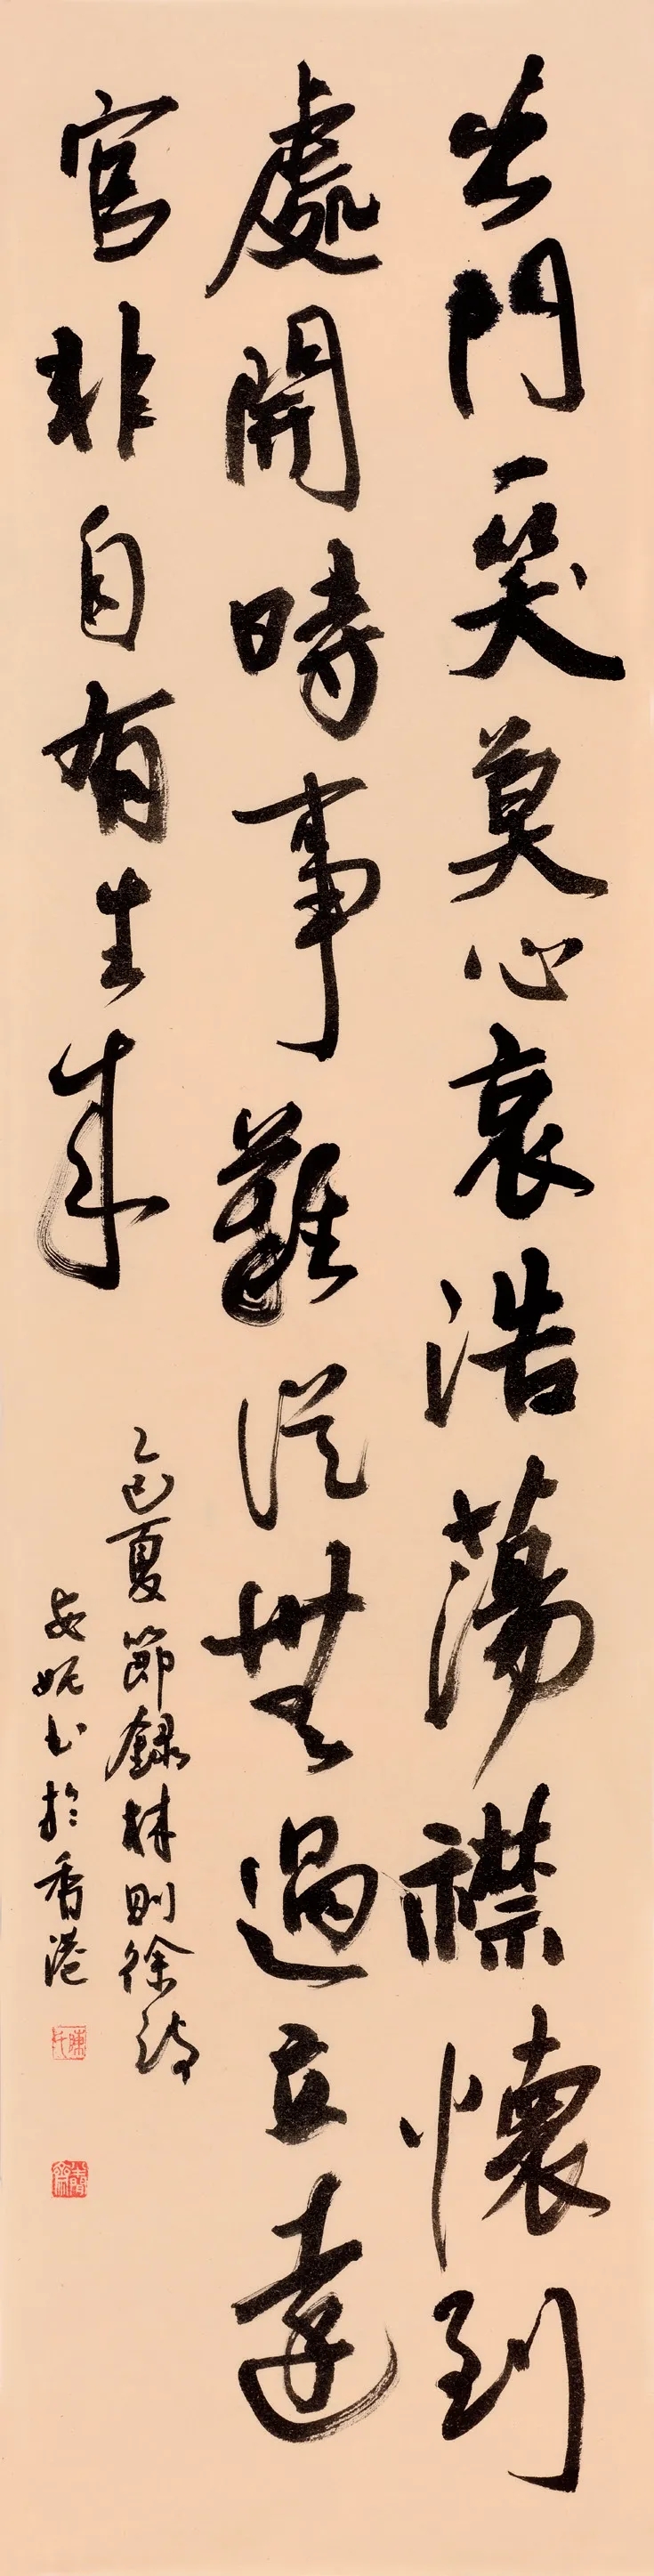 出門一笑莫心哀浩蕩襟懷到
處開時事難從無過立達
官非自有生來
乙巳夏節錄林則徐詩
安妮書於香港